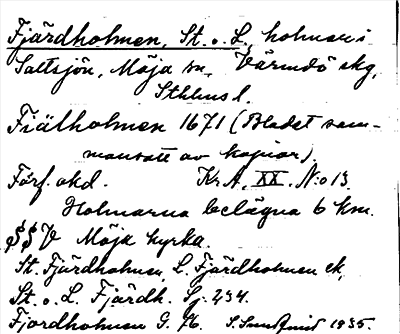 Fjärdholmen, St. o. L. holmar i
Saltsjön, Möja sn, Värmdö skg,
Sthlms l.
Fiälholmen 1671 (Bladet sam-
mansatt av kopior).
Förf. okd. Kr. A. XX. N:o 13.
Holmarna belägna 6 km.
V Möja kyrka.
St. Fjärdholmen, L. Fjärdholmen ek,
St. o. L. Fjärdh. Sj. 234.
Fjordholmen G. K. S. 1935.